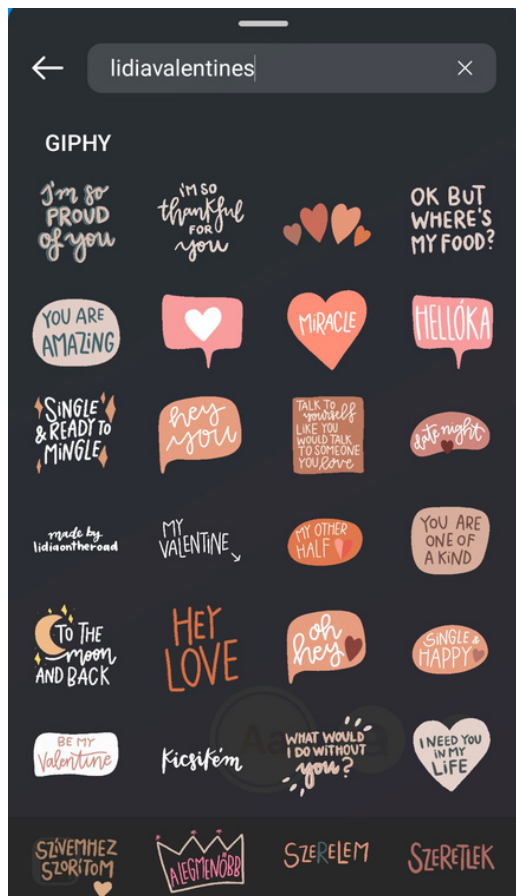 lidiavalentines
GIPHY
I'm so
PROUD
of you
I'M SO
thankful
FOR
you
OK BUT
WHERE'S
MY FOOD?
YOU ARE
AMAZING
MiRACLE
HELLÓKA
SiNGLE
& READY TO
MiNGLE
hey
you
TALK TO
yourself
LIKE YOU
WOULD TALK
TO SOMEONE
YOU love
date night
made by
lidiaontheroad
MY
VALENTiNE
MY OTHER
HALF
YOU ARE
ONE OF
A KIND
TO THE
moon
AND BACK
HEY
LOVE
oh
hey
SiNGLE &
HAPPY
BE MY
Valentine
Kicsikém
WHAT WOULD
I DO WITHOUT
you?
I NEED YOU
IN MY
LiFE
SZÍVEMHEZ
SZORÍTOM
A LEGMENŐBB
SZERELEM
SZERETLEK